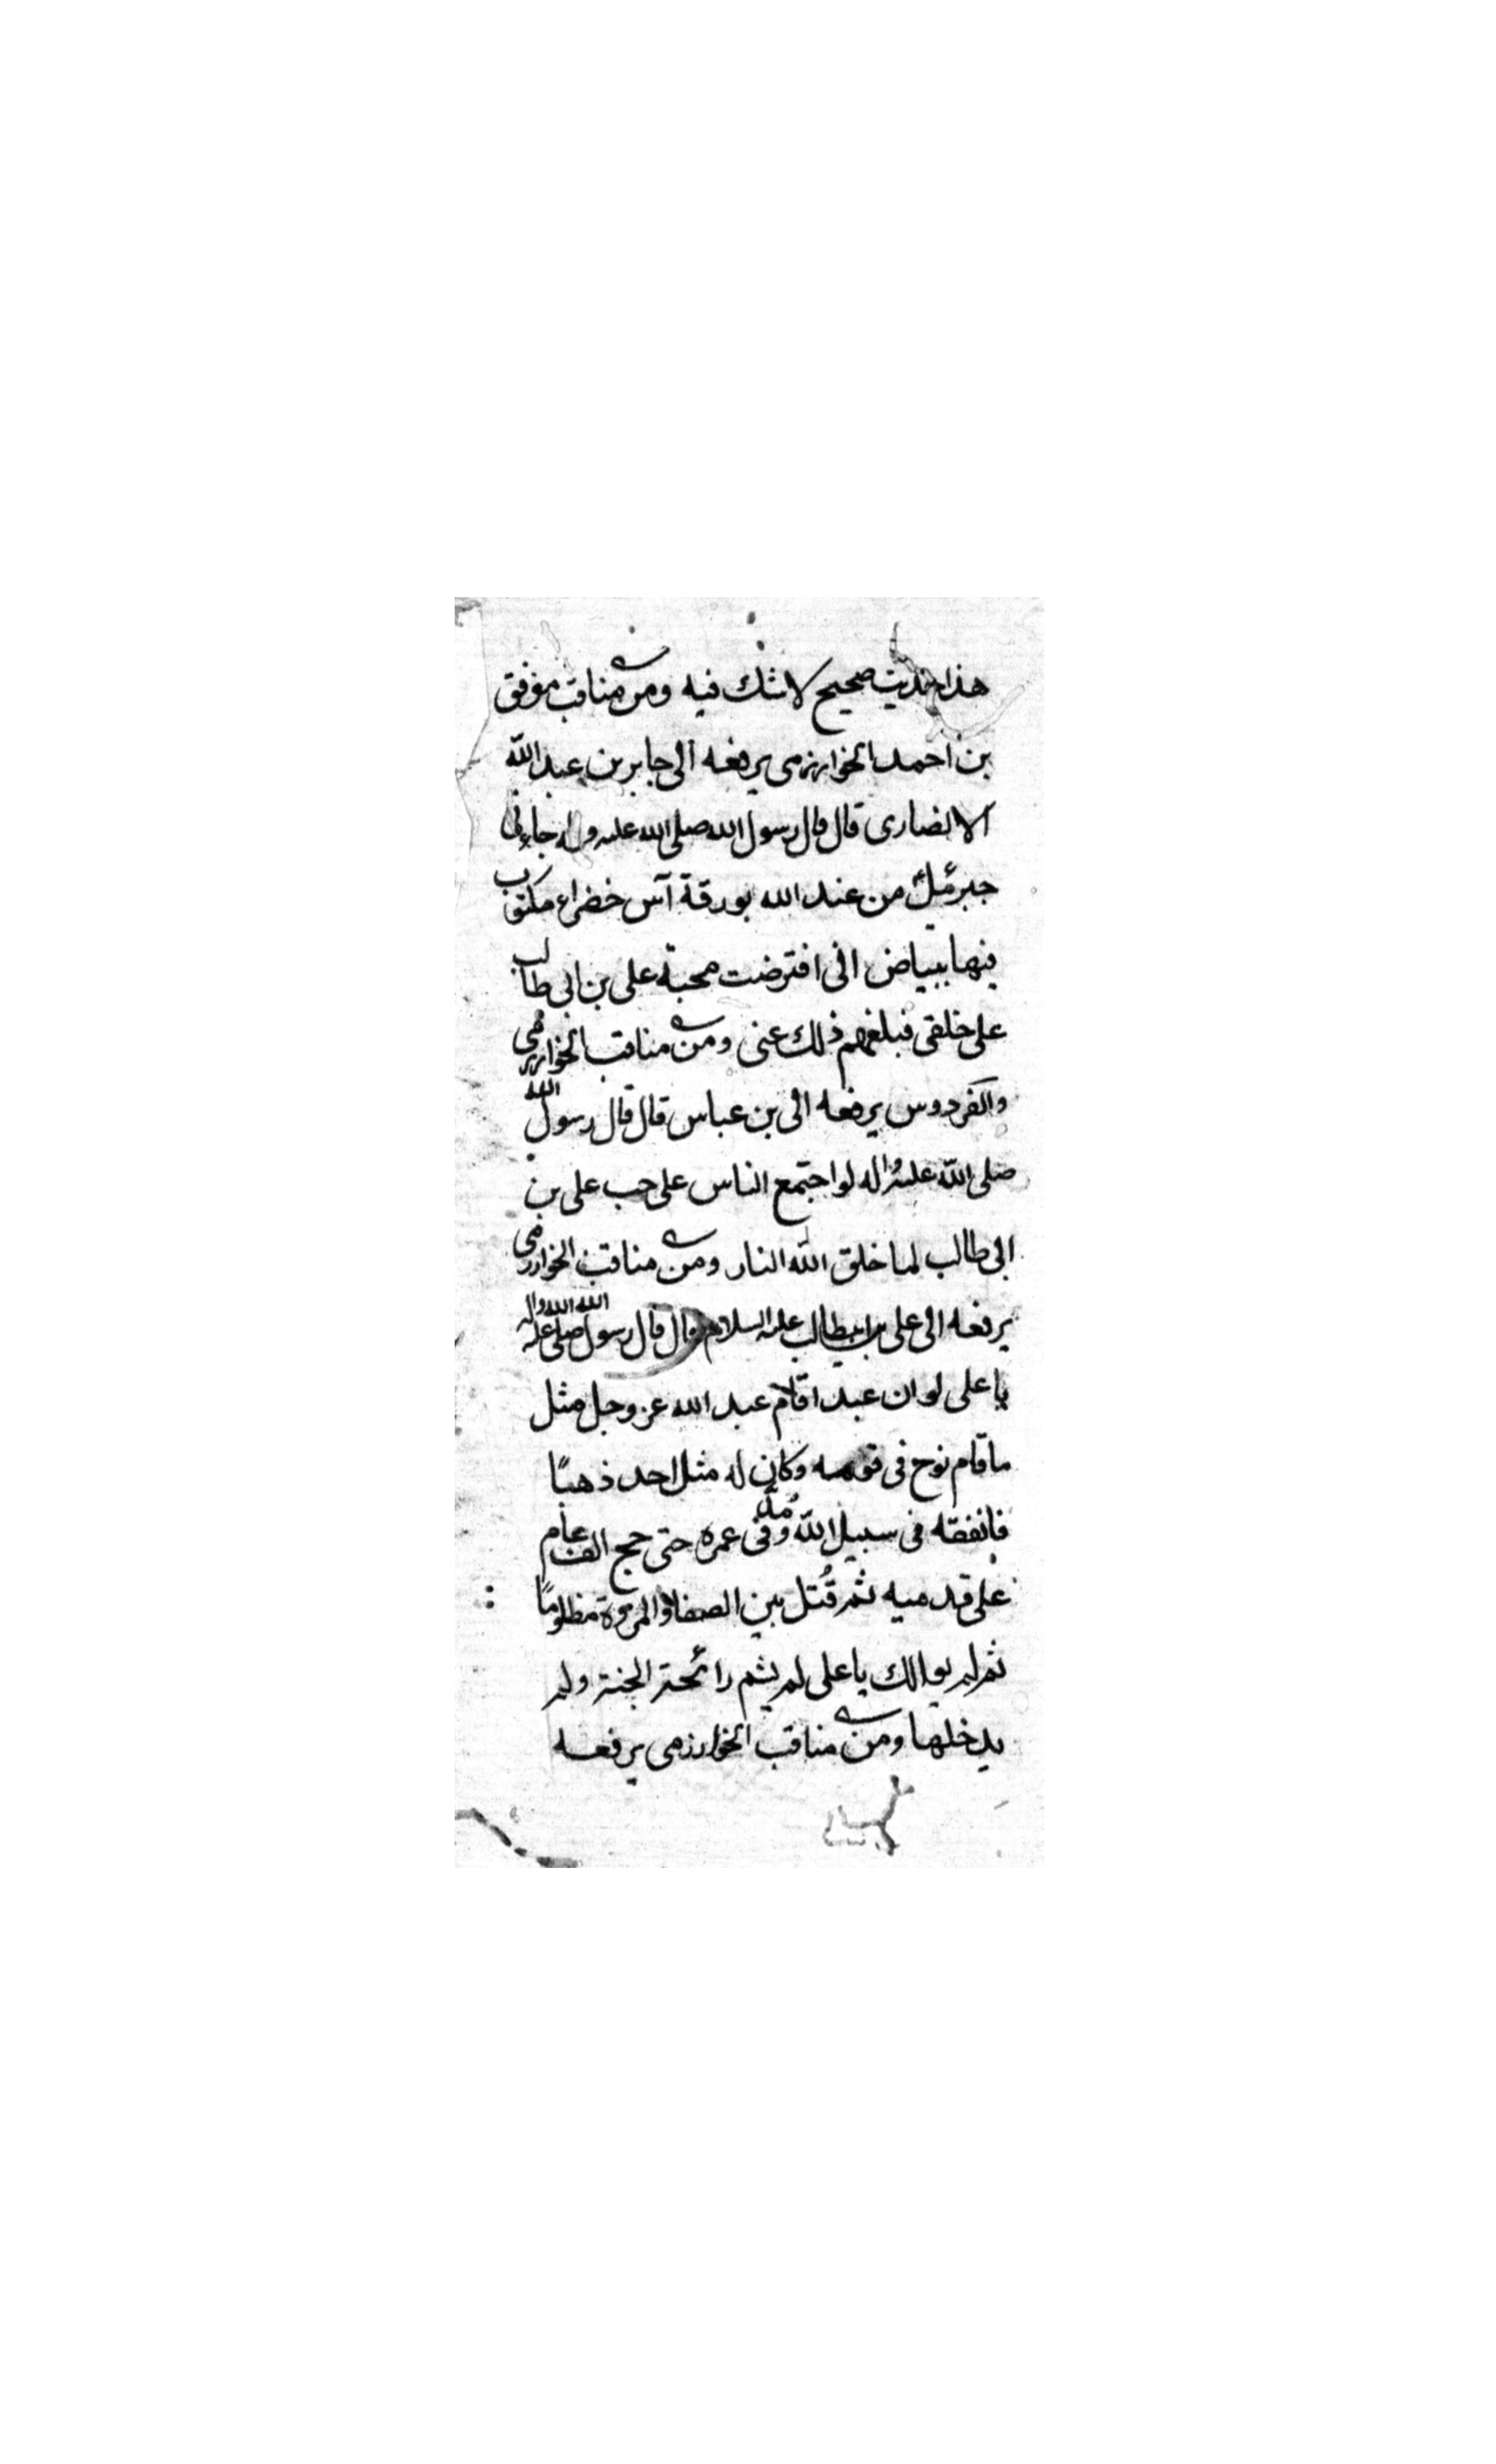 هذا حديث صحيح لا شك فيه ومن مناقب موفق
بن احمد الخوارزمى يرفعه الى جابر بن عبد الله
الانصارى قال قال رسول الله صلى الله عليه واله جاءنى
جبرئيل من عند الله بورقة آس خضراء مكتوب
فيها ببياض انى افترضت محبة على بن ابى طالب
على خلقى فبلغهم ذلك عنى ومن مناقب الخوارزمى
والفردوس يرفعه الى بن عباس قال قال رسول الله
صلى الله عليه واله لو اجتمع الناس على حب على بن
ابى طالب لما خلق الله النار ومن مناقب الخوارزمى
يرفعه الى على بن ابيطالب عليه السلام قال قال رسول الله صلى الله عليه واله
يا على لو ان عبدا قام عبد الله عز وجل مثل
ما قام نوح فى قومه وكان له مثل احد ذهبًا
فانفقه فى سبيل الله ومد فى عمره حتى حج الف عام
على قدميه ثم قُتل بين الصفا والمروة مظلومًا
ثم لم يوالك يا على لم يشم رائحة الجنة ولم
يدخلها ومن مناقب الخوارزمى يرفعه